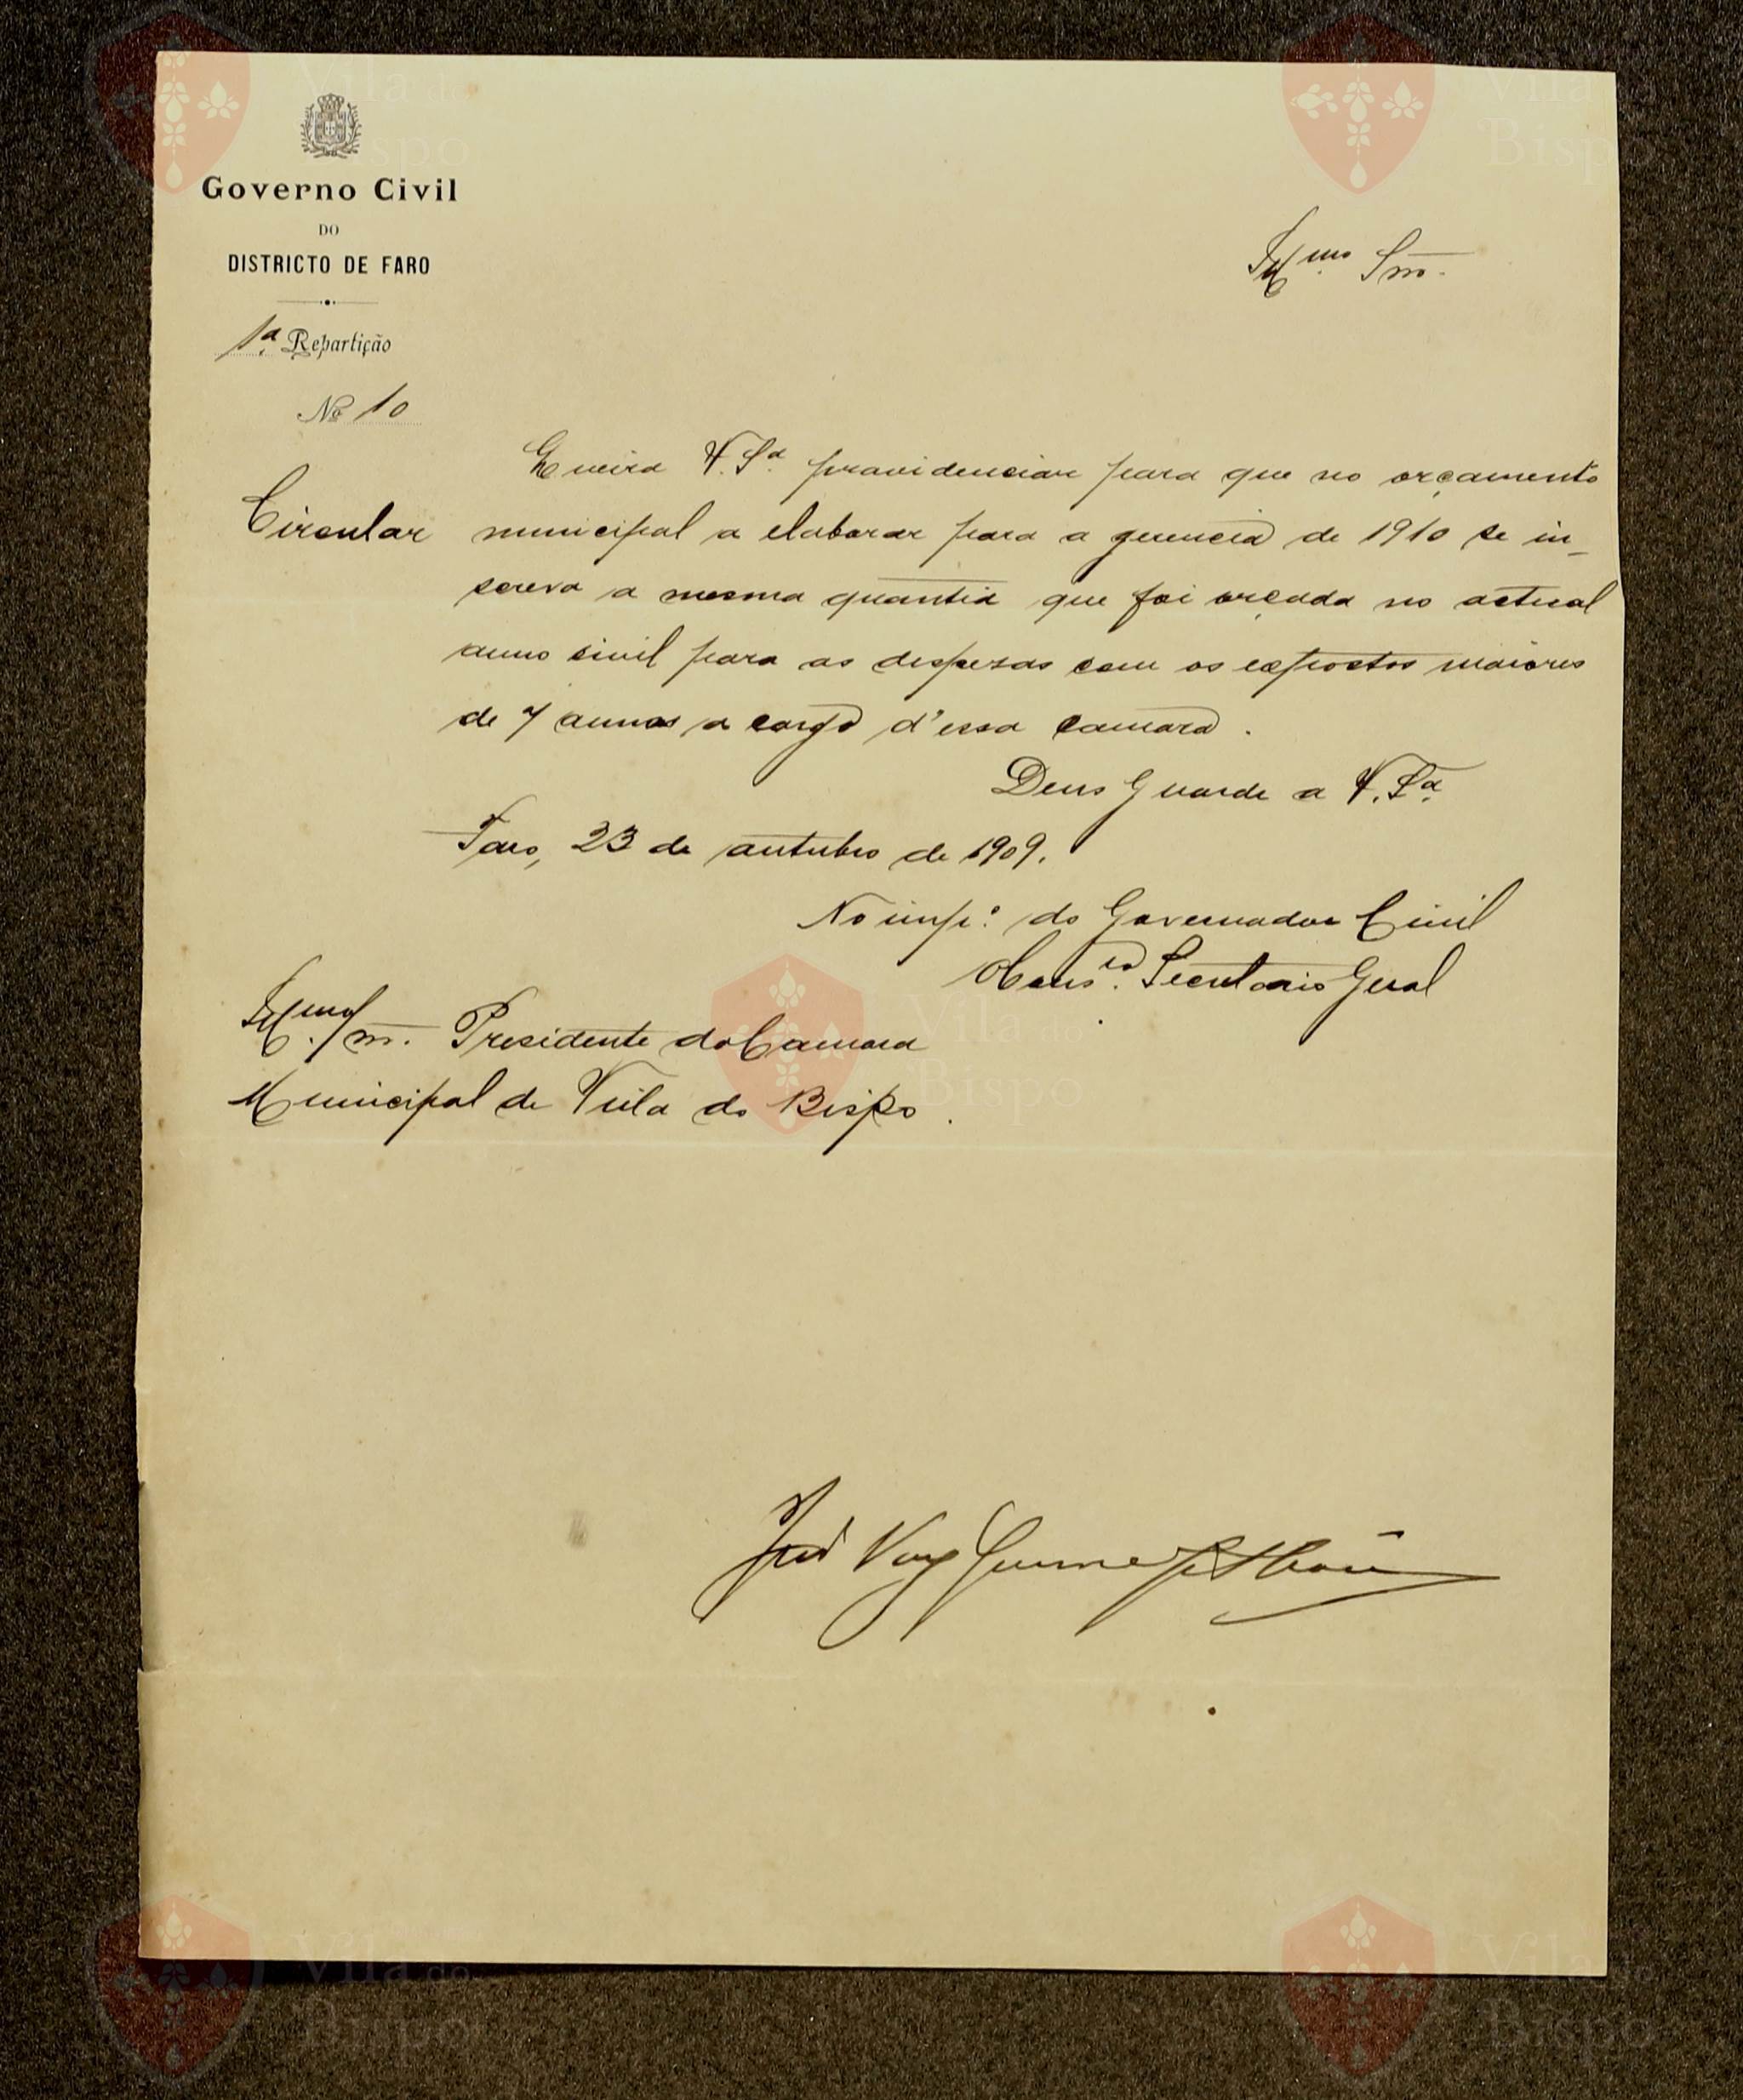 Governo Civil
DO
DISTRICTO DE FARO
1ª Repartição
Nº 10
Exmo Snr.
Circular
Queira V. Sª providenciar para que no orçamento
municipal a elaborar para a gerencia de 1910 se in-
screva a mesma quantia que foi orçada no actual
anno civil para as despezas com os expostos maiores
de 7 annos a cargo d'essa camara.
Deus Guarde a V. Sª
Faro, 23 de outubro de 1909.
No impº do Governador Civil
O Consro Secretario Geral
Exmo Snr. Presidente da Camara
Municipal de Villa do Bispo.
José Vaz
Vila do
Bispo